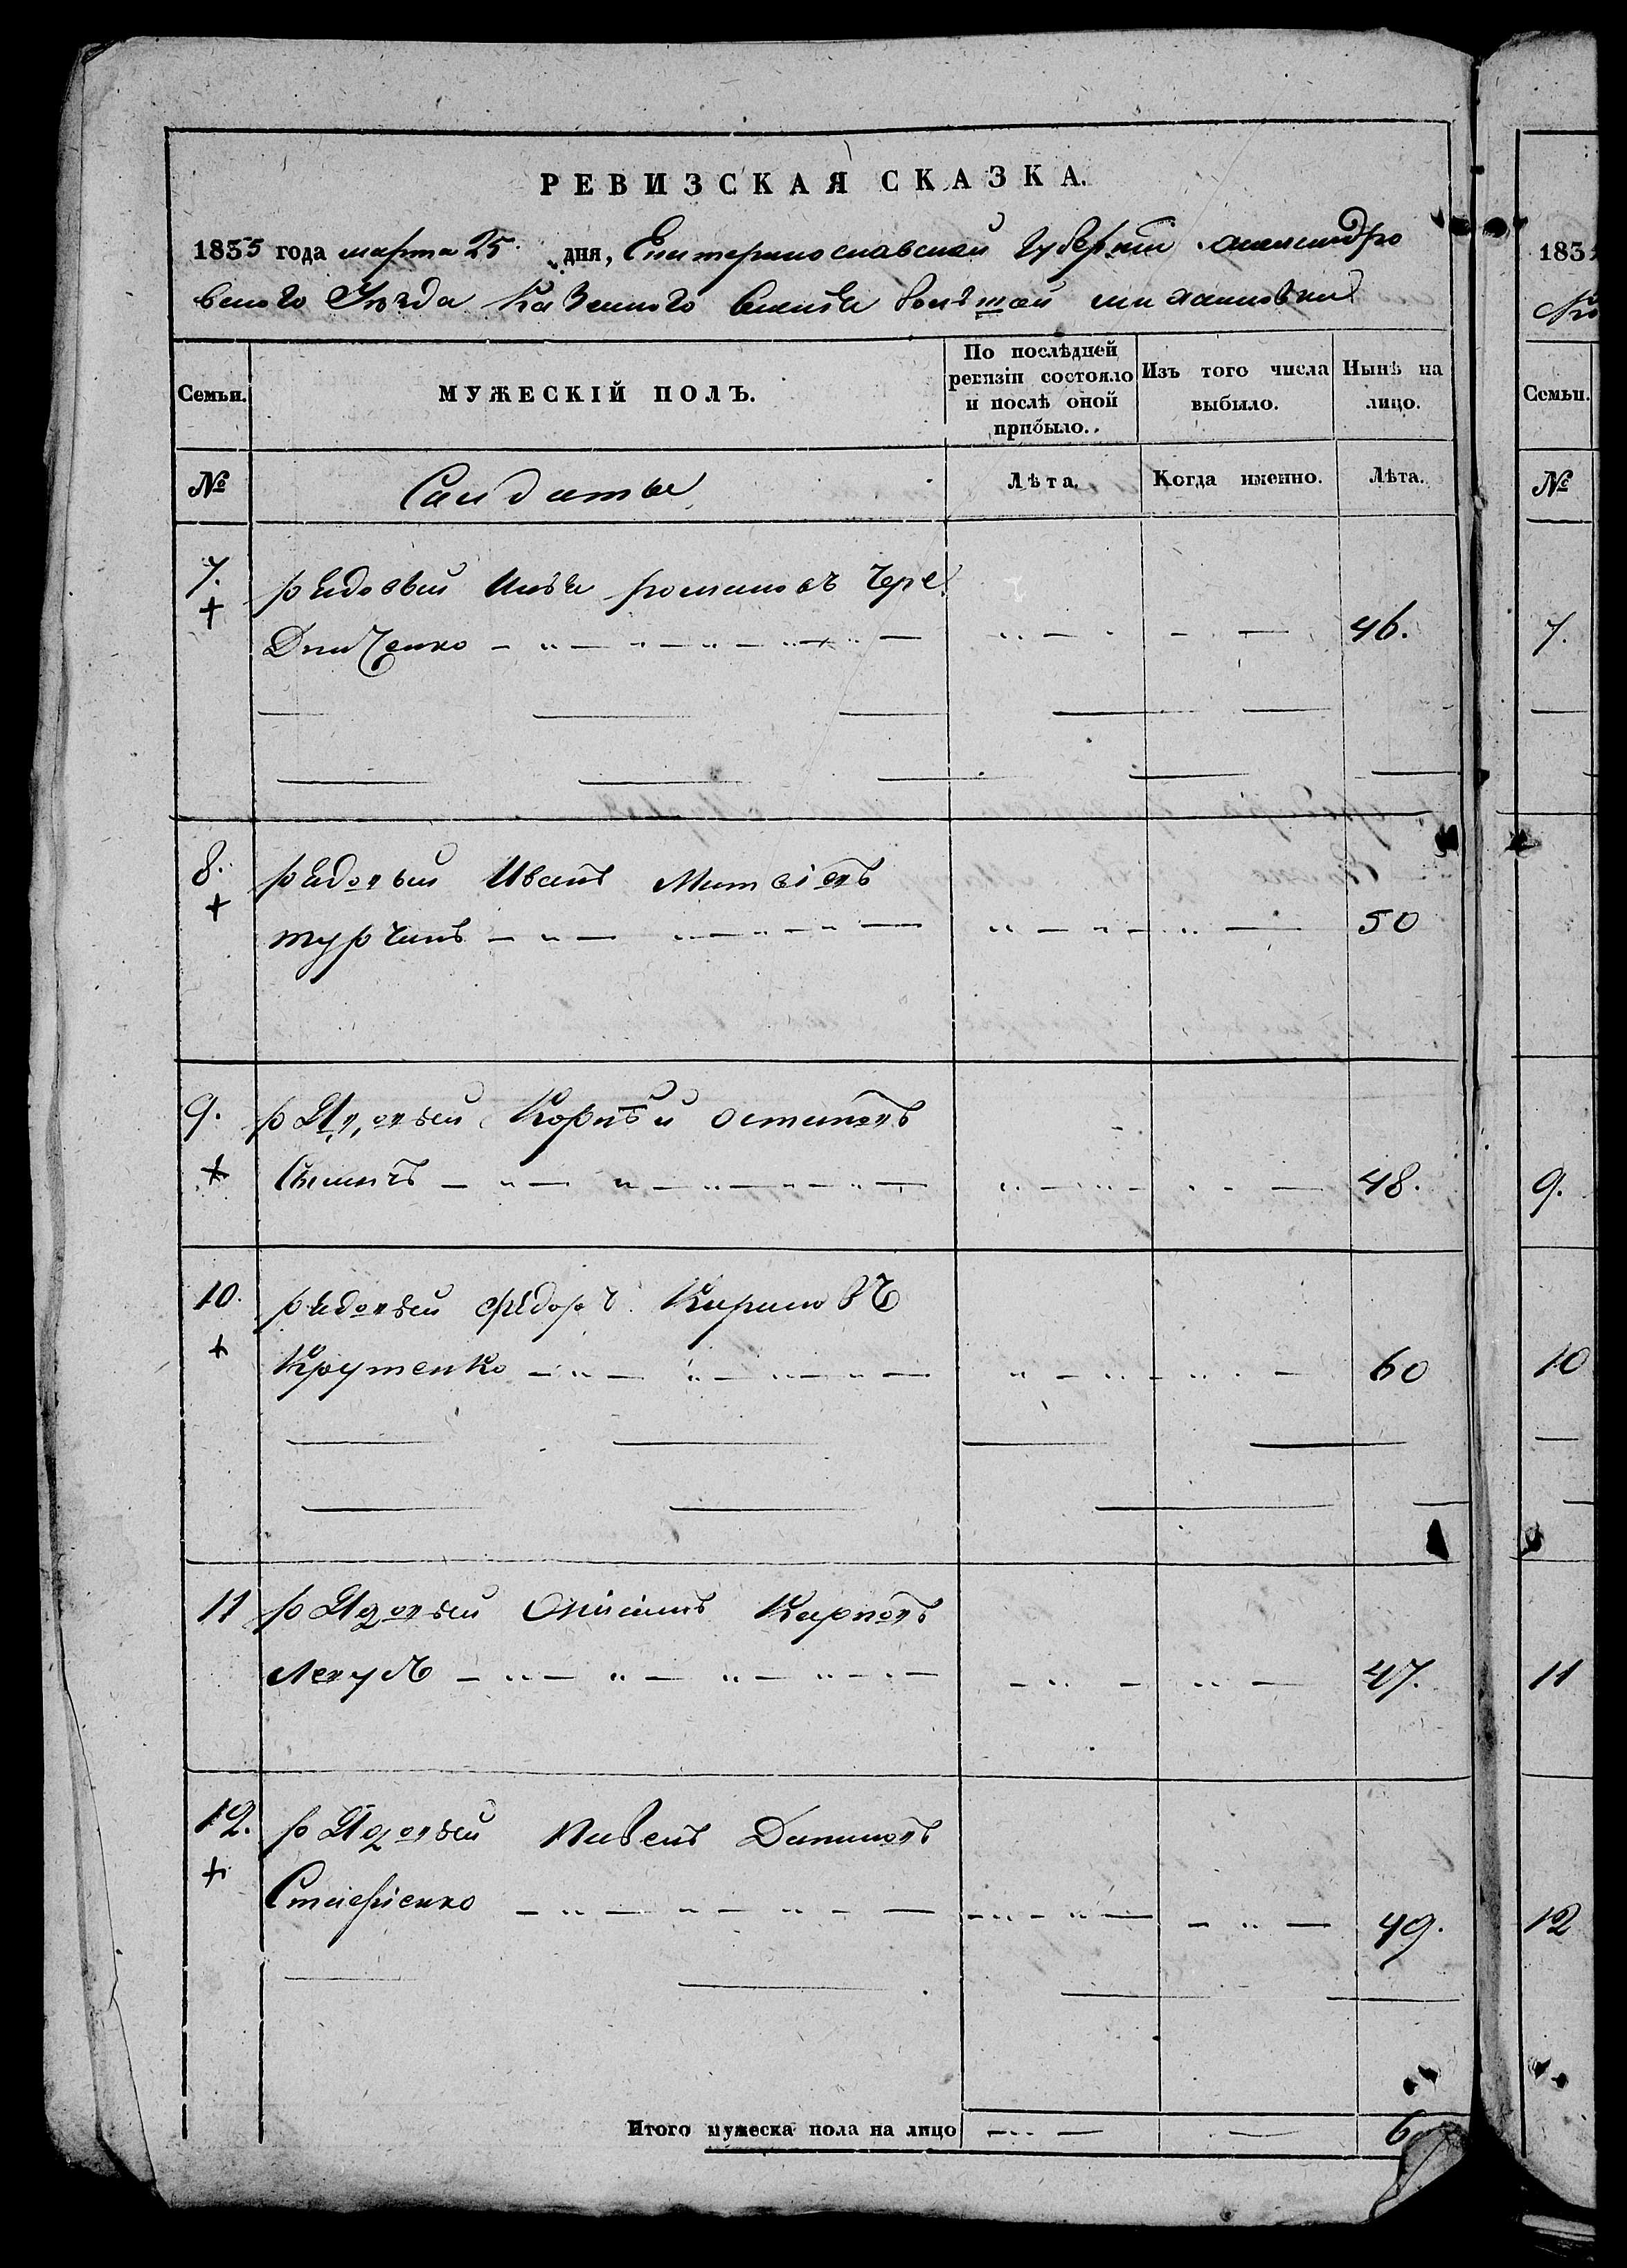 РЕВИЗСКАЯ СКАЗКА.
1835 года марта 25. дня, Екатеринославской Губернии александро
вского Уезда Казенного Селения большой михайловки
Семьи.
МУЖЕСКІЙ ПОЛЪ.
По послѣдней ревизіи состояло и послѣ оной прибыло.
Изъ того числа выбыло.
Нынѣ на лицо.
№
Салдаты
Лѣта.
Когда именно.
Лѣта.
7. рядовый романовъ Чере
дниченко 46.
8. рядовый Иванъ Матвіовъ
турчинъ 50
9. рядовый Корнѣй остаповъ
48.
10. рядовый фѣдоръ Кириловъ
Крутенко 60
11 рядовый Карповъ
47.
12. рядовый Павелъ Даниловъ
49.
Итого мужеска пола на лицо 6
183
Семьи.
№
7.
9.
10
11
12